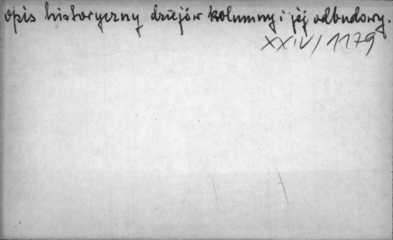 opis historyczny dziejów kolumny i jej odbudowy.
XXIV/1179